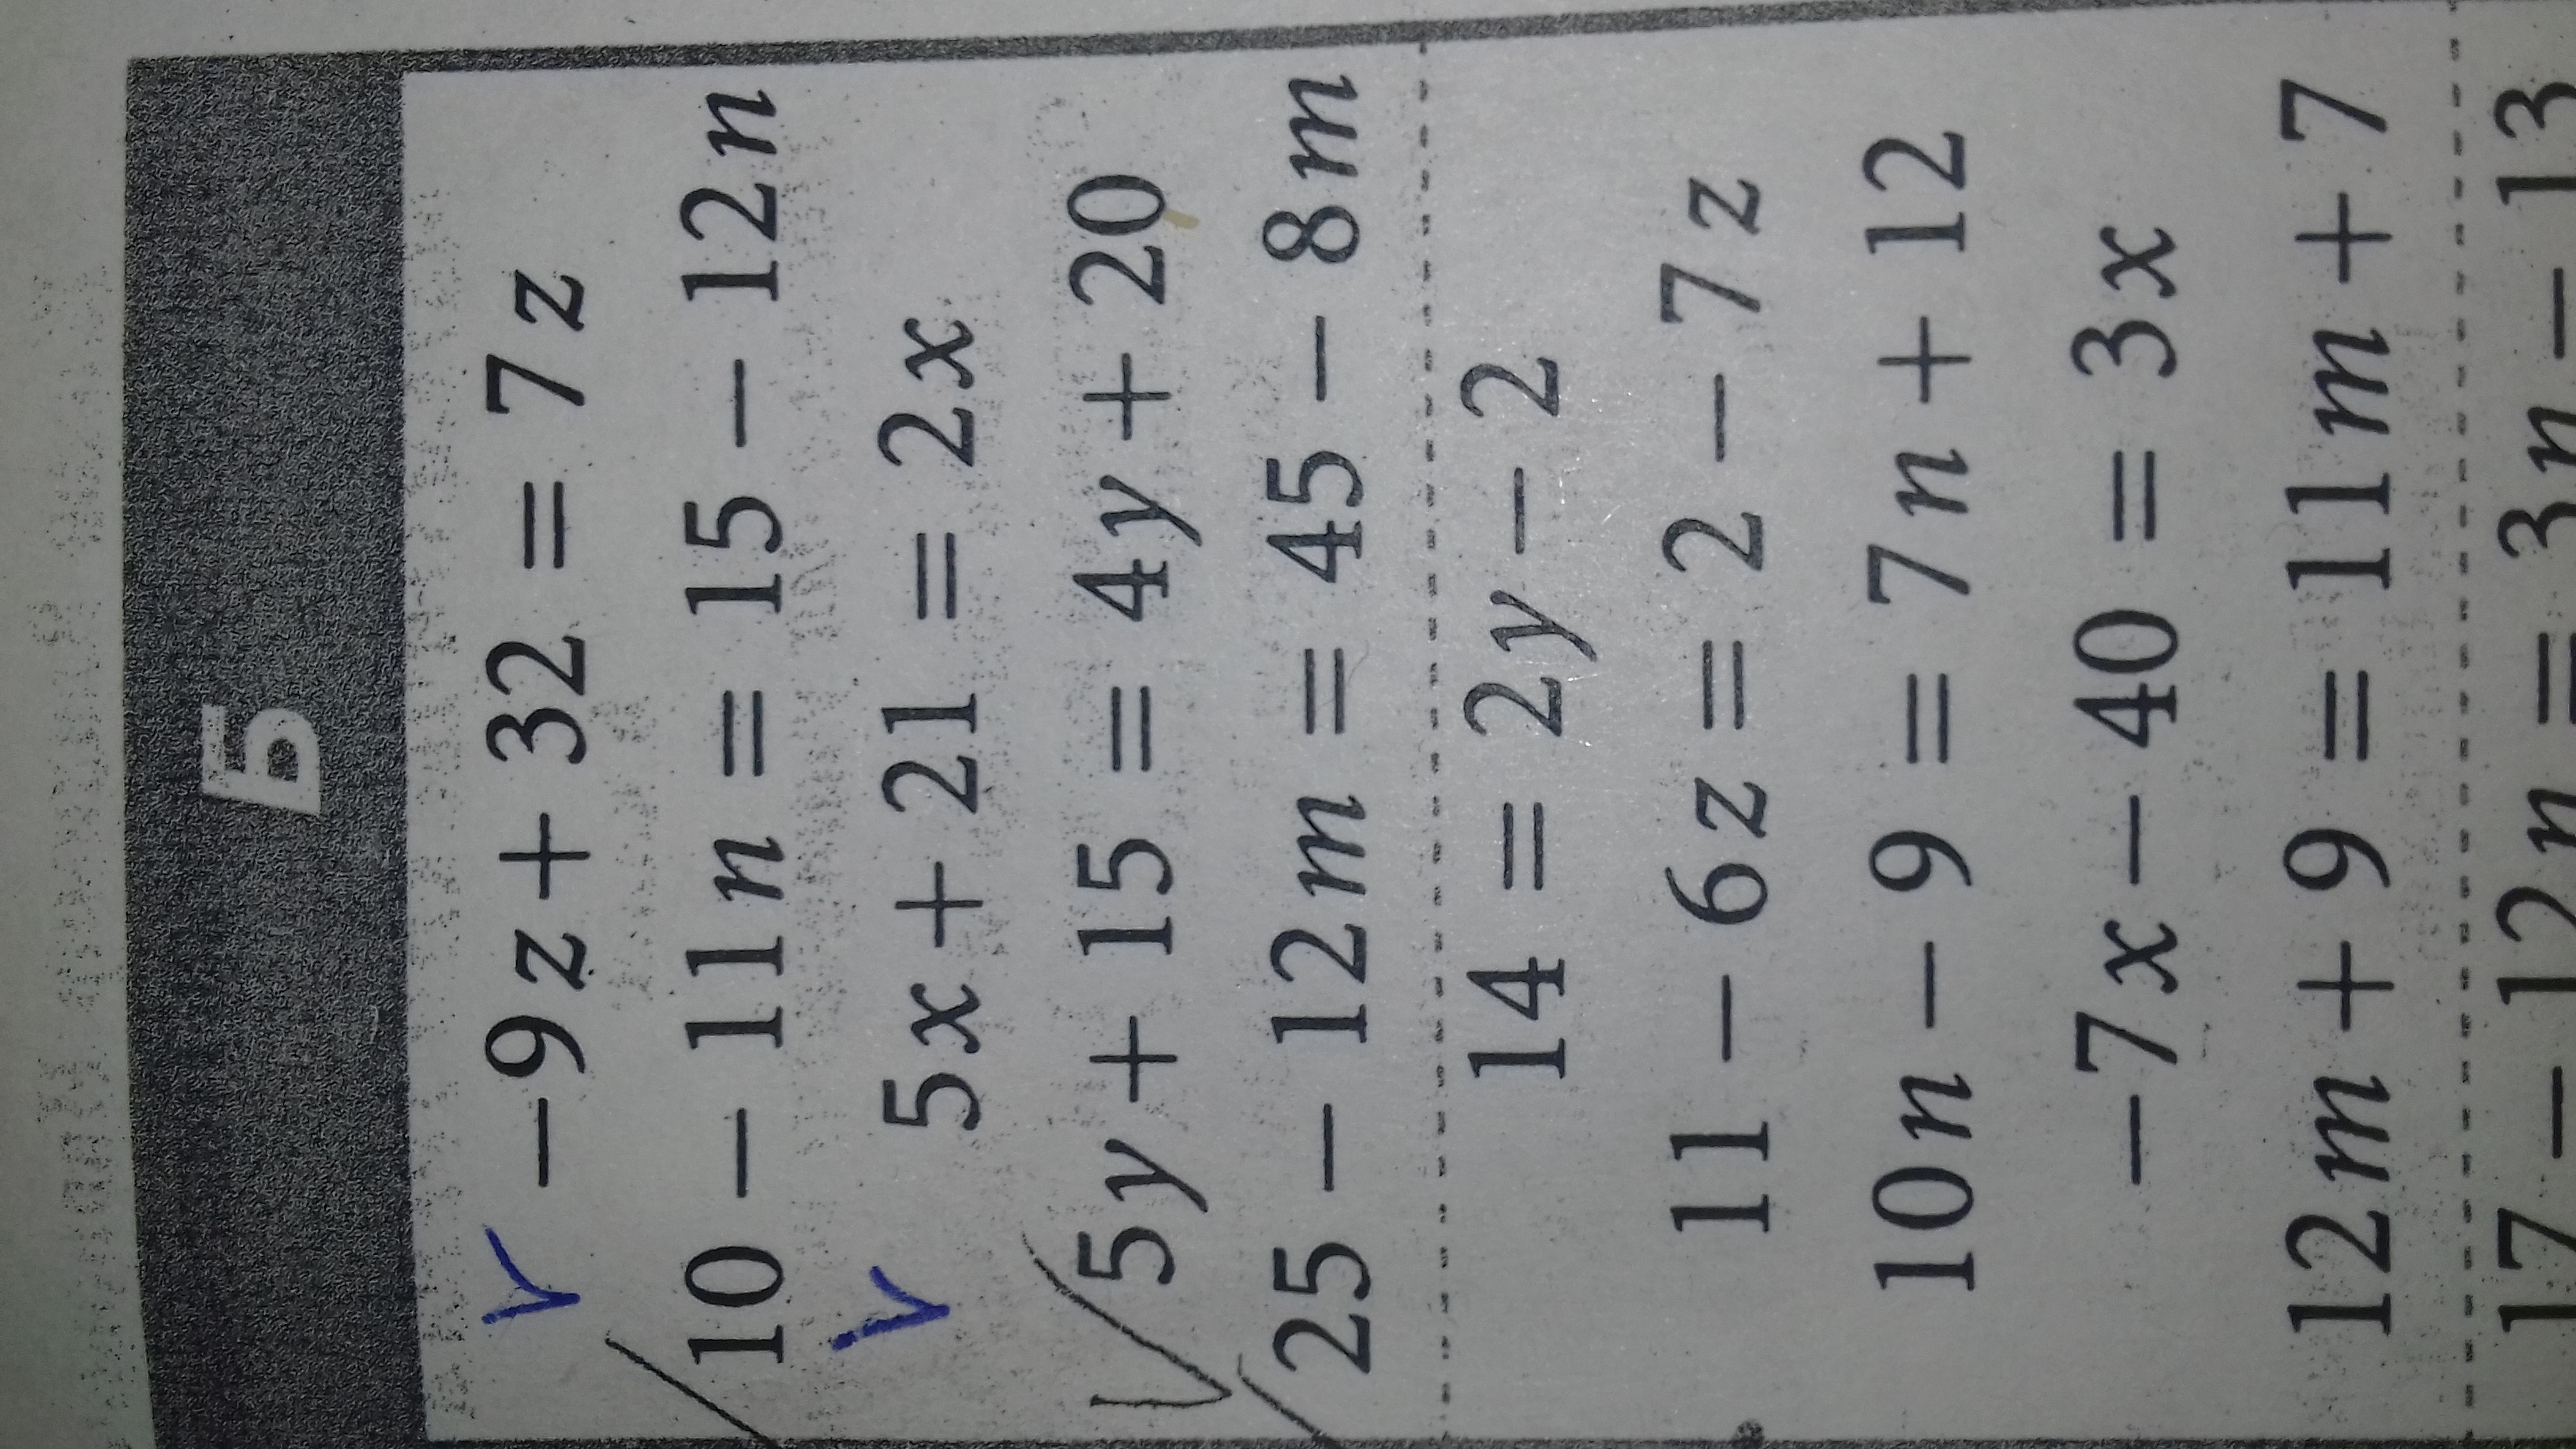 Б
-9z + 32 = 7z
10 - 11n = 15 - 12n
5x + 21 = 2x
5y + 15 = 4y + 20
25 - 12m = 45 - 8m
14 = 2y - 2
11 - 6z = 2 - 7z
10n - 9 = 7n + 12
-7x - 40 = 3x
12m + 9 = 11m + 7
17 - 12n = 3n - 13